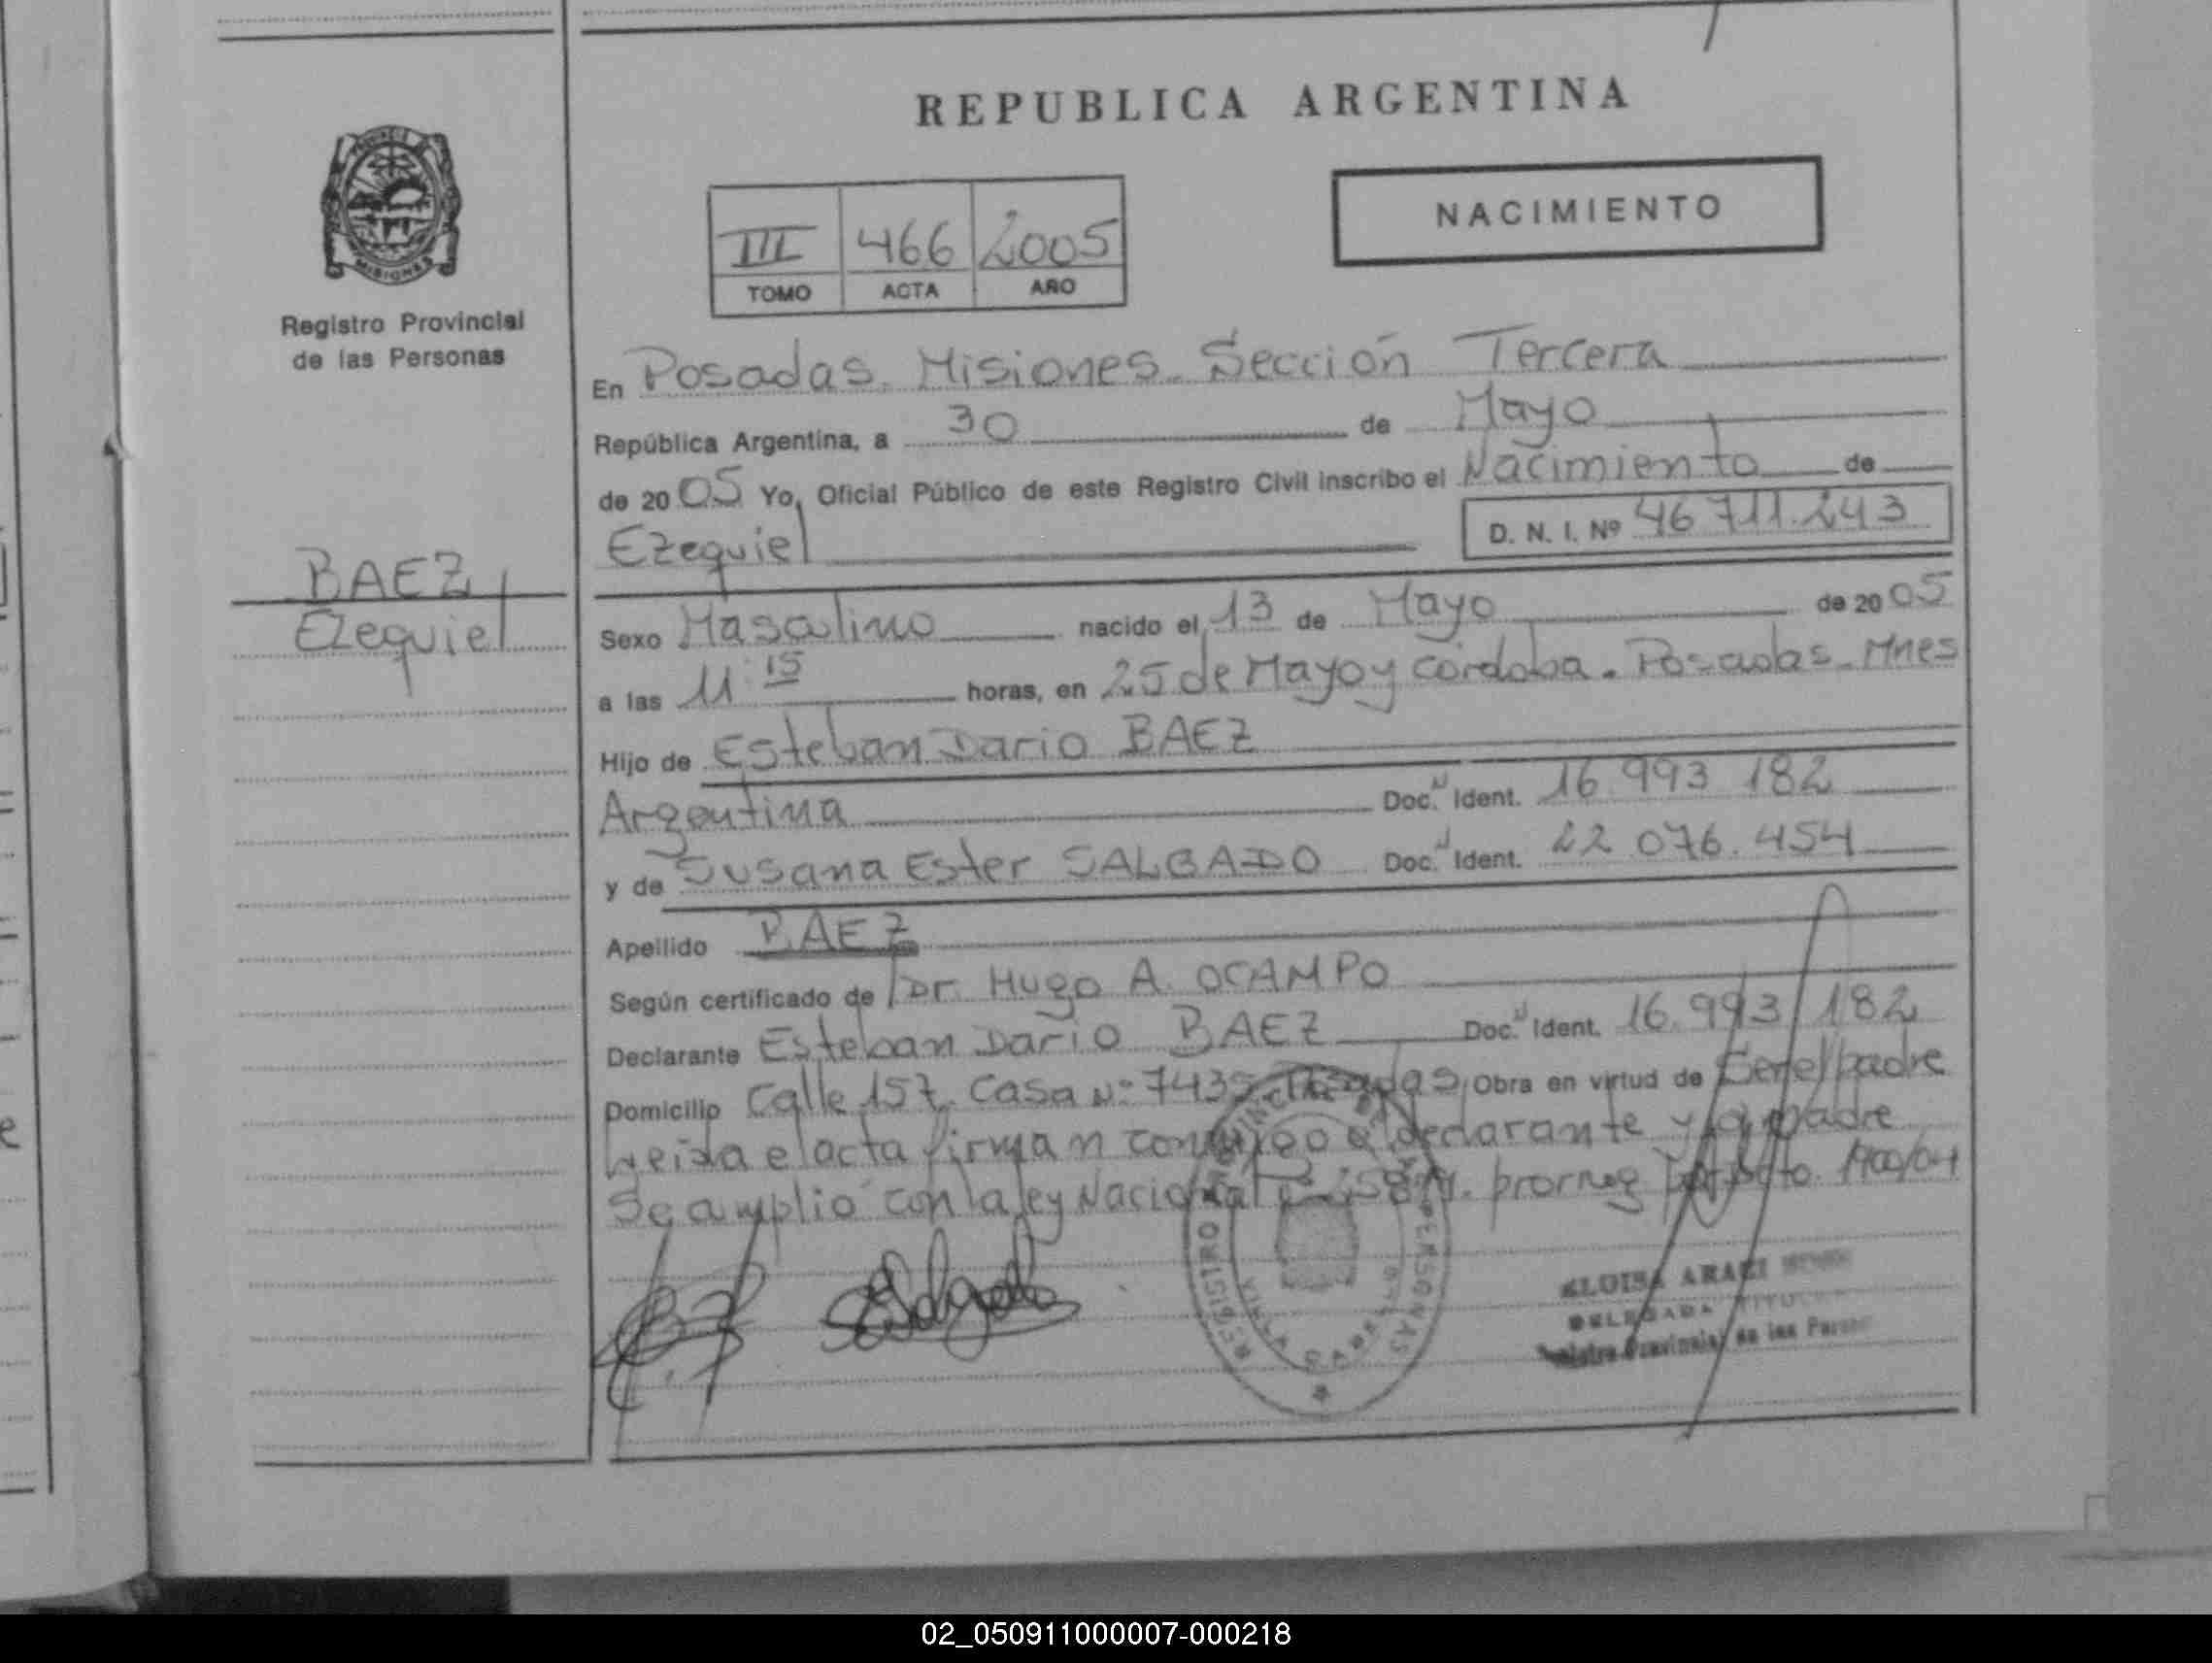 REPUBLICA ARGENTINA
PROVINCIA
MISIONES
Registro Provincial
de las Personas
NACIMIENTO
III 466 2005
TOMO ACTA AÑO
En Posadas. Misiones. Sección Tercera
República Argentina, a 30 de Mayo
de 2005 Yo, Oficial Público de este Registro Civil inscribo el Nacimiento de
Ezequiel
D. N. I. Nº 46 711.243
BAEZ,
Ezequiel
Sexo Masculino nacido el 13 de Mayo de 2005
a las 11:15 horas, en 25 de Mayo y córdoba. Posadas. Mnes
Hijo de Esteban Dario BAEZ
Argentina Doc. Ident. 16.993 182
y de Susana Ester SALGADO Doc. Ident. 22.076.454
Apellido BAEZ
Según certificado de Dr. Hugo A. OCAMPO
Declarante Esteban Dario BAEZ Doc. Ident. 16.993 182
Domicilio Calle 157. Casa Nº 7435 Posadas Obra en virtud de Ser el padre
Leida el acta firman conmigo el declarante y la madre
Se amplio con la ley Nacional prorrog 1900/04
REGISTRO PERSONAS
ELOISA ARACI
DELEGADA TITULAR
Registro Provincial de las
02_050911000007-000218